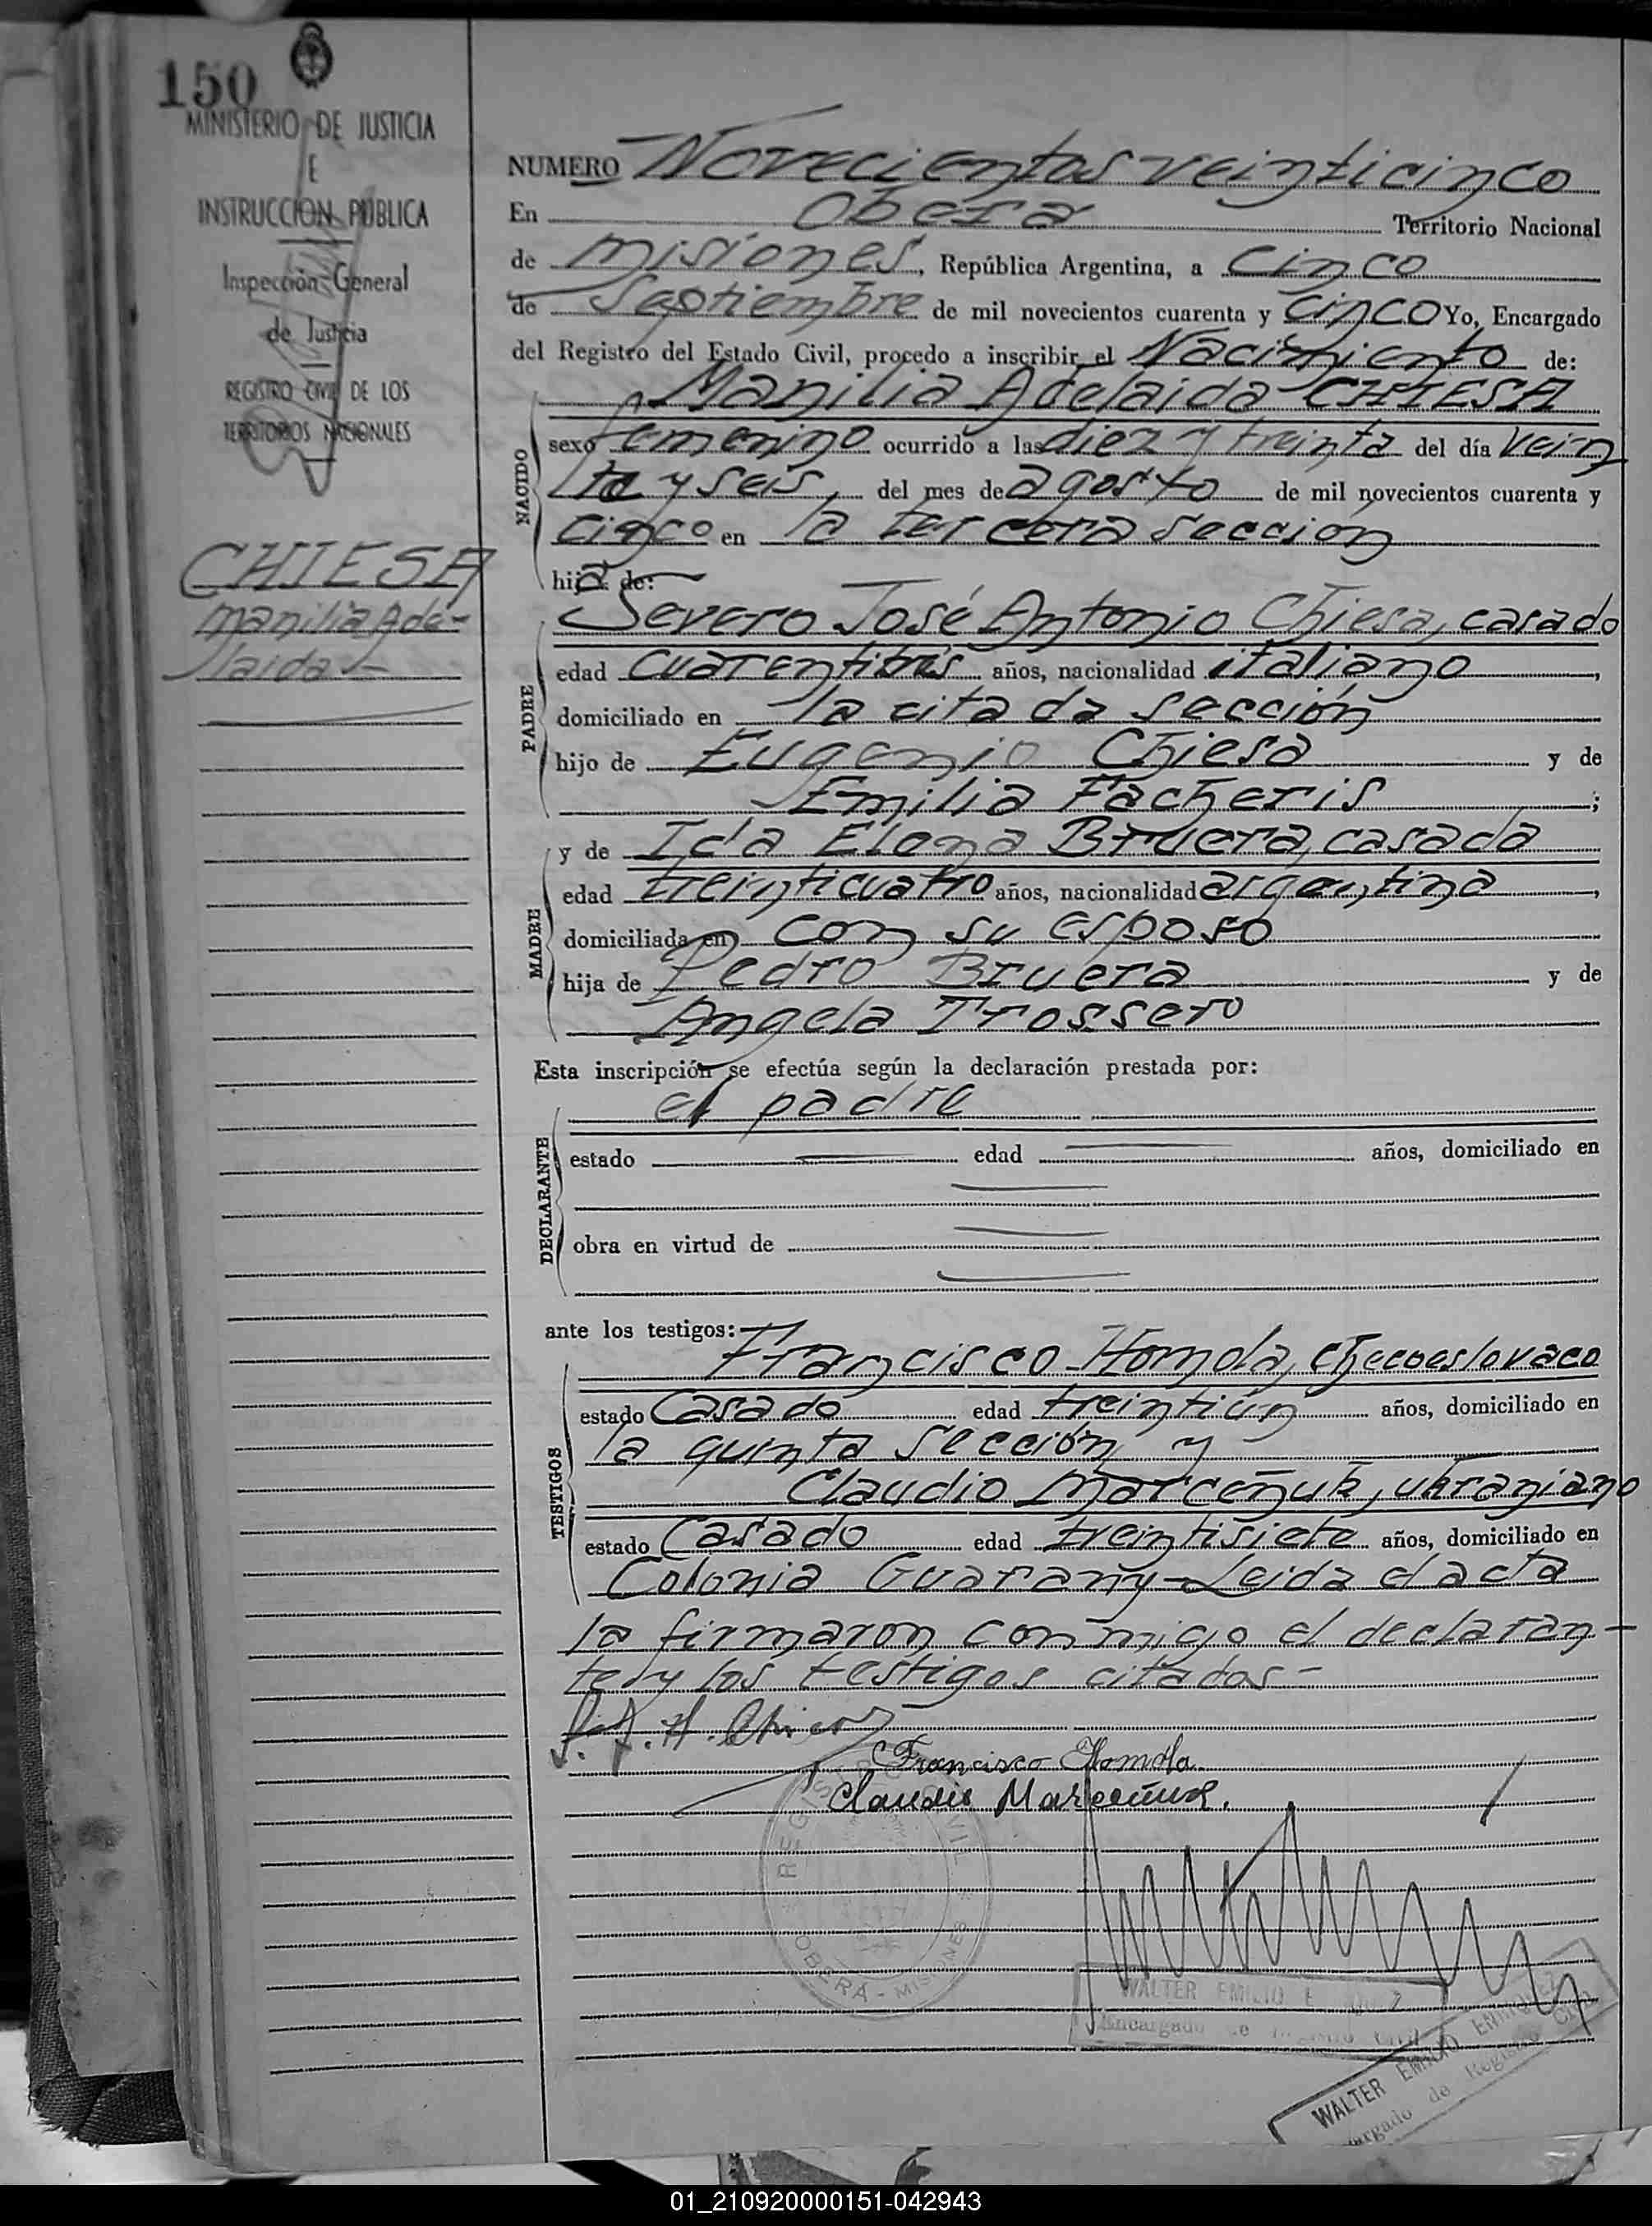 150
MINISTERIO DE JUSTICIA
E
INSTRUCCION PUBLICA
Inspección General
de Justicia
REGISTRO CIVIL DE LOS
TERRITORIOS NACIONALES
CHIESA
Manilia Ade-
laida -
NUMERO Novecientos veinticinco
En Obera Territorio Nacional
de Misiones, República Argentina, a cinco
de Septiembre de mil novecientos cuarenta y cinco Yo, Encargado
del Registro del Estado Civil, procedo a inscribir el Nacimiento de:
Manilia Adelaida CHIESA
NACIDO
sexo femenino ocurrido a las diez y treinta del día vein
te y seis, del mes de agosto de mil novecientos cuarenta y
cinco en la tercera sección
hija de:
Severo José Antonio Chiesa, casado
PADRE
edad cuarentitrés años, nacionalidad italiano,
domiciliado en la citada sección
hijo de Eugenio Chiesa y de
Emilia Facheris;
y de Ida Elena Bruera, casada
MADRE
edad treinticuatro años, nacionalidad argentina,
domiciliada en con su esposo
hija de Pedro Bruera y de
Angela Trossero
Esta inscripción se efectúa según la declaración prestada por:
el padre
DECLARANTE
estado edad años, domiciliado en
obra en virtud de
ante los testigos:
Francisco Homola, checoeslovaco
TESTIGOS
estado Casado edad treintiún años, domiciliado en
la quinta sección y
Claudio Marceñuk, ukraniano
estado Casado edad treintisiete años, domiciliado en
Colonia Guarañy-Leida el acta
la firmaron conmigo el declaran-
te y los testigos citados-
Francisco Homola.
Claudio Marceñuk.
REGISTRO CIVIL
OBERA - MISIONES
WALTER EMILIO E
Encargado
WALTER EMILIO ENRIQUEZ
argado de Registro Civil
01_210920000151-042943